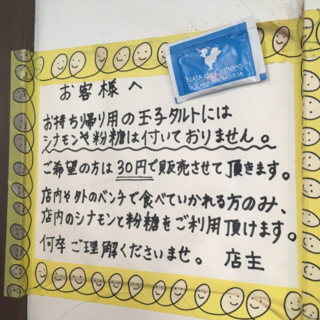 お客様へ
お持ち帰り用の玉子タルトには
シナモンや粉糖は付いておりません。
ご希望の方は30円で販売させて頂きます。
店内や外のベンチで食べていかれる方のみ、
店内のシナモンと粉糖をご利用頂けます。
何卒ご理解くださいませ。 店主
NATA de Cristiano